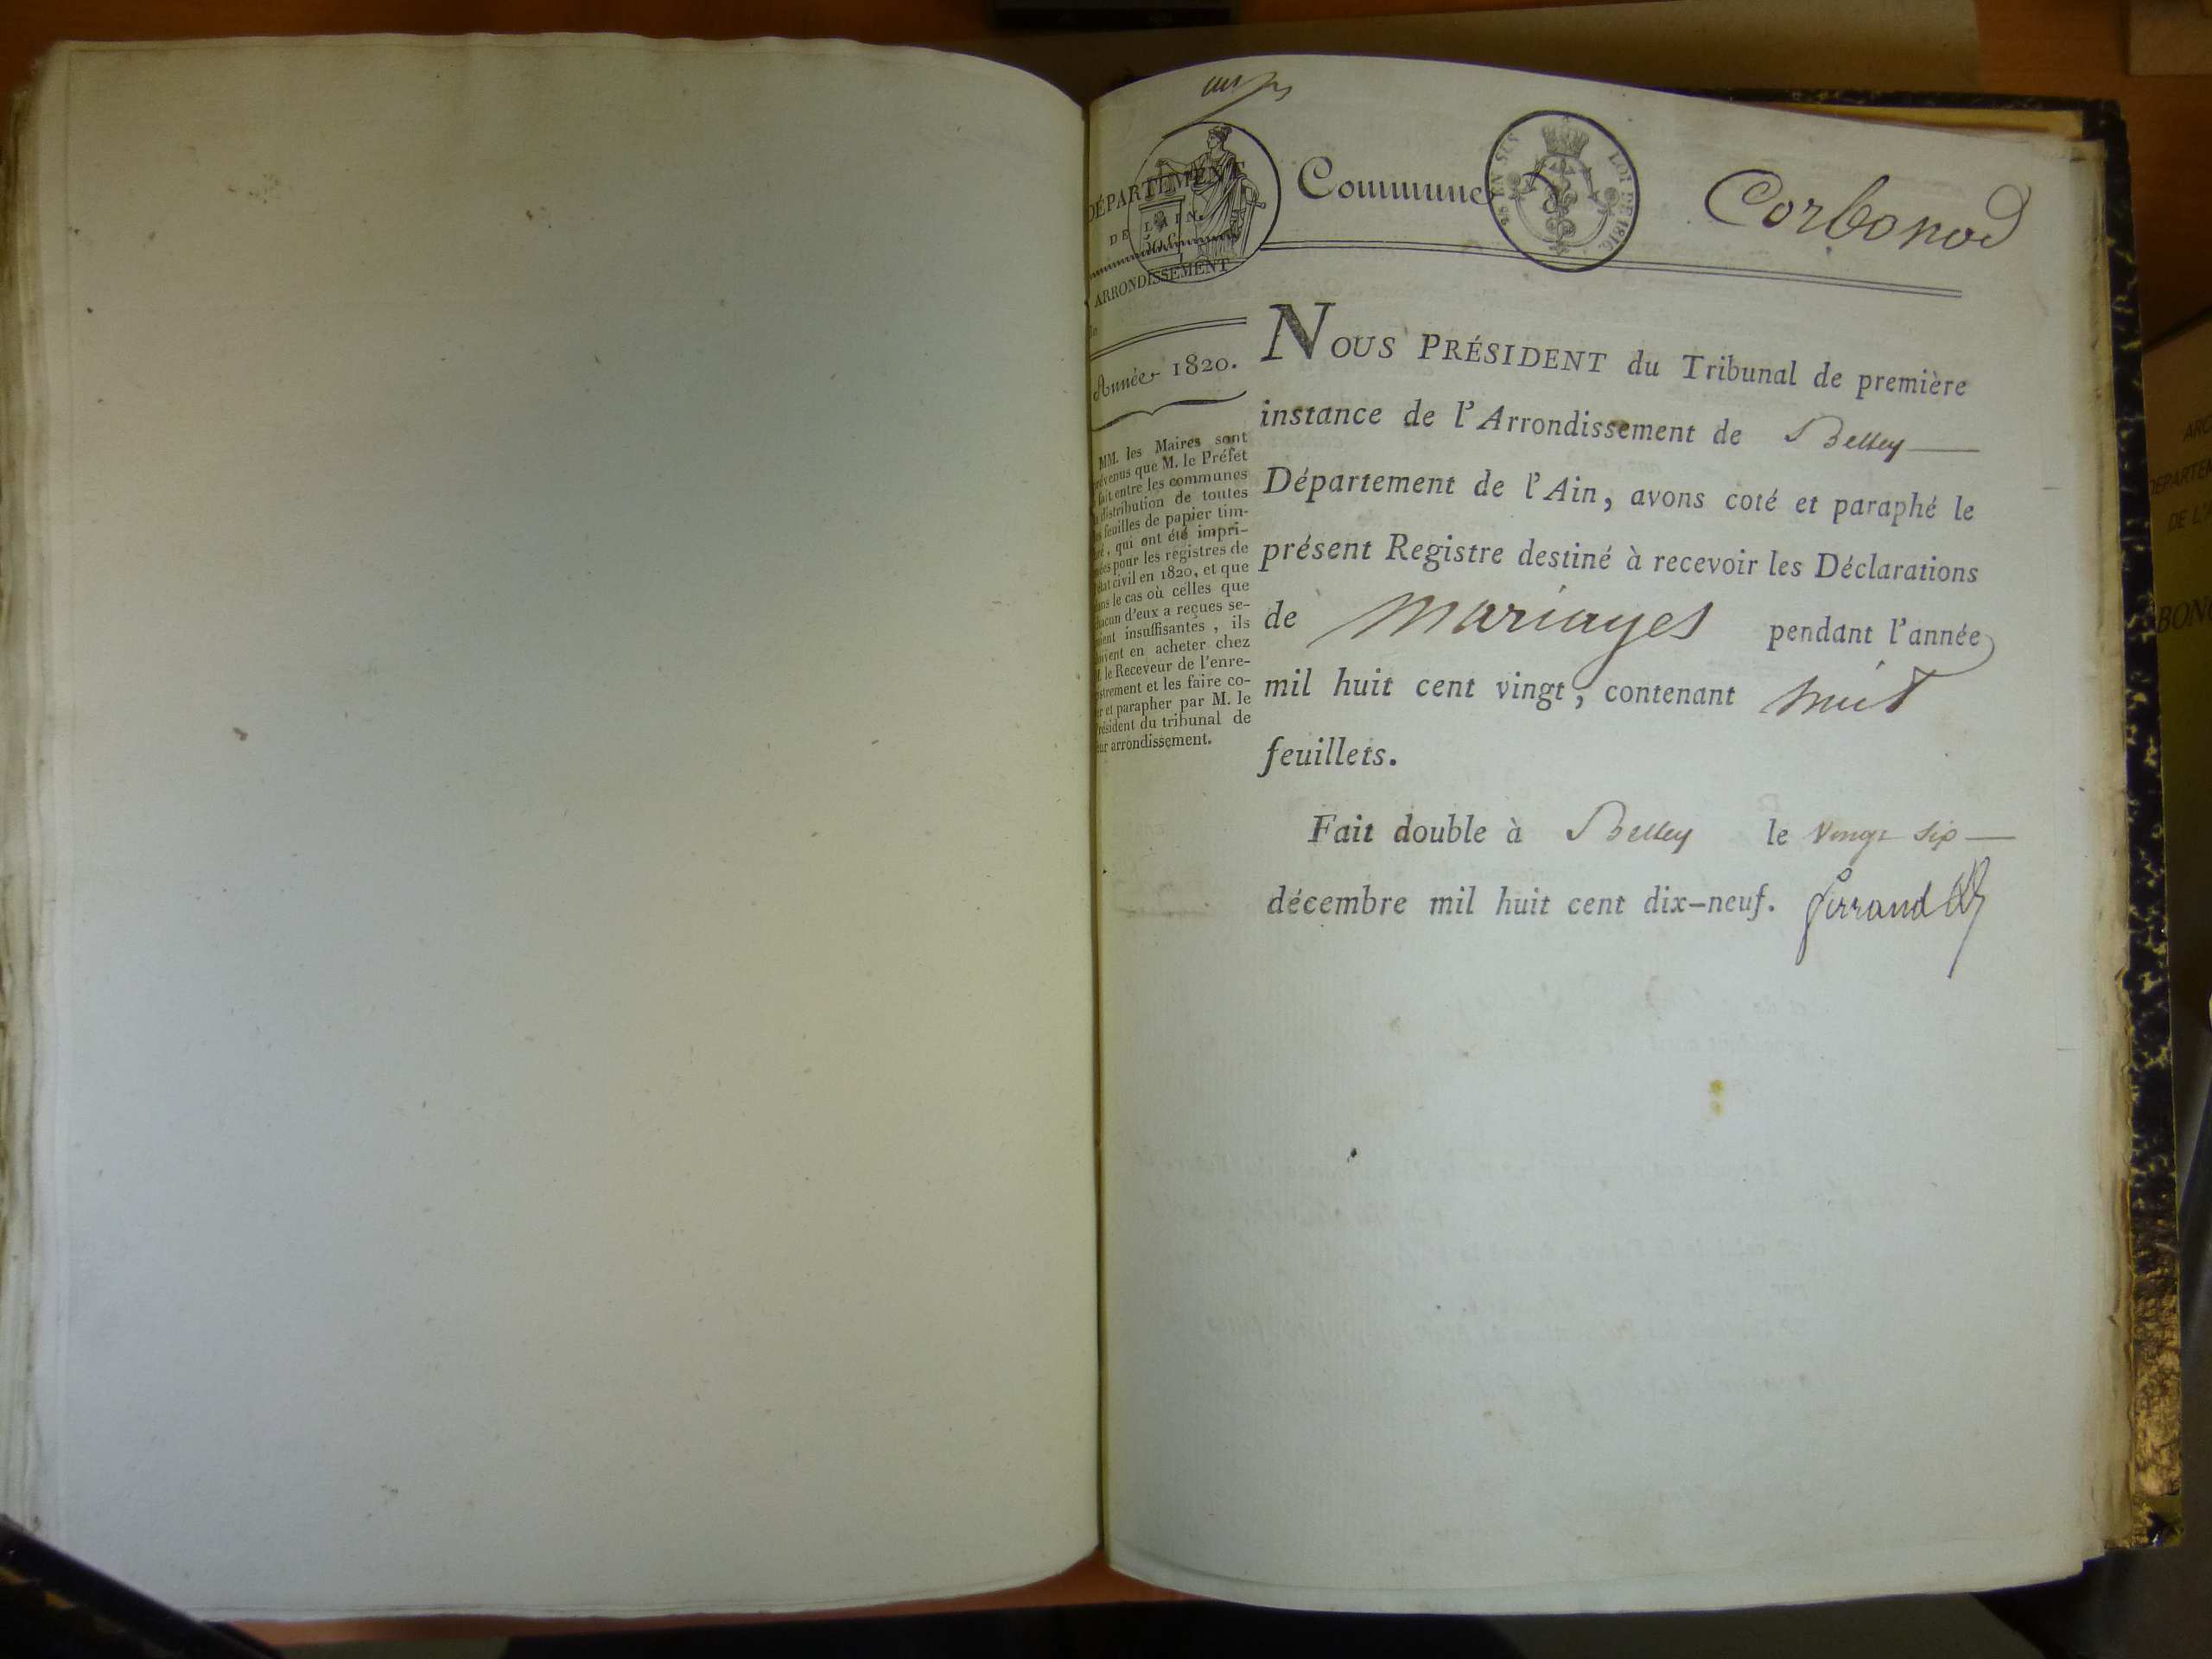 DÉPARTEMENT
DE L'AIN.
ARRONDISSEMENT
Commune
EN SUS
LOI DE 1816.
Corbonod
Année 1820.
MM. les Maires sont
prévenus que M. le Préfet
a fait entre les communes
la distribution de toutes
les feuilles de papier tim-
bré, qui ont été impri-
mées pour les registres de
l'état civil en 1820, et que
dans le cas où celles que
chacun d'eux a reçues se-
roient insuffisantes, ils
doivent en acheter chez
M. le Receveur de l'enre-
gistrement et les faire co-
ter et parapher par M. le
Président du tribunal de
leur arrondissement.
NOUS PRÉSIDENT du Tribunal de première
instance de l'Arrondissement de Belley
Département de l'Ain, avons coté et paraphé le
présent Registre destiné à recevoir les Déclarations
de Mariages pendant l'année
mil huit cent vingt, contenant huit
feuillets.
Fait double à Belley le vingt six
décembre mil huit cent dix-neuf.